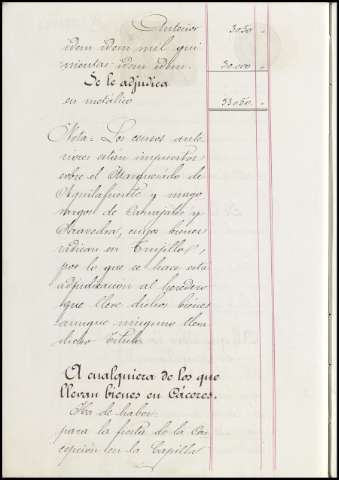 Anterior 3050 "
idem idem mil qui
nientas idem idem. 30.000 "
Se le adjudica
en metálico 33050 "
Nota = Los censos ante
riores están impuestos
sobre el Marquesado de
Aguilafuente y mayo
razgos de Carvajales y
Saavedra, cuyos bienes
radican en Trujillo,
por lo que se hace esta
adjudicación al heredero
que lleve dichos bienes
aunque ninguno lleve
dicho título
A cualquiera de los que
llevan bienes en Cáceres.
Ha de haber
para la fiesta de la Con
cepción en la Capilla